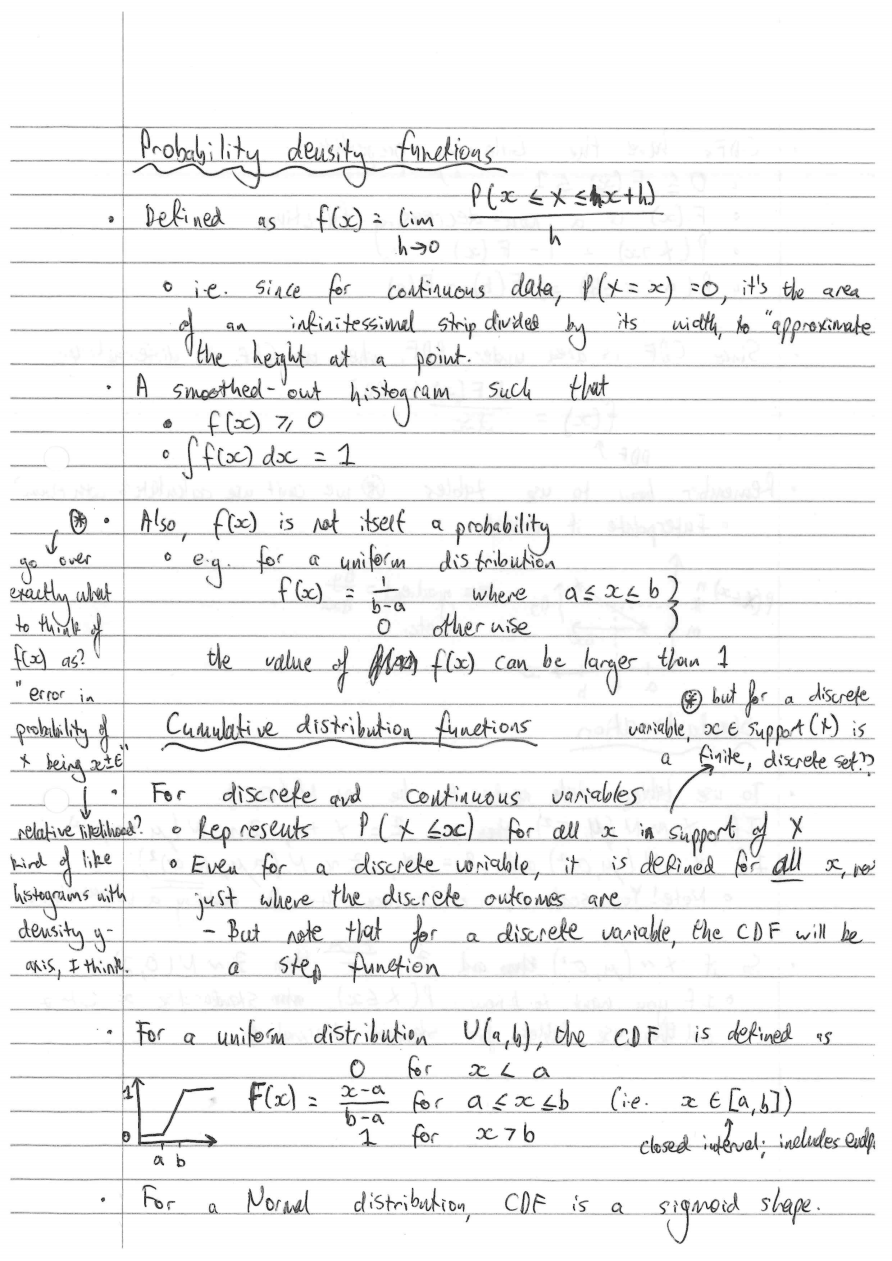 Probability density functions
• Defined as f(x) = lim h→0 P(x ≤ X ≤ x+h) / h
○ i.e. since for continuous data, P(X = x) = 0, it's the area
of an infinitessimal strip divided by its width, to "approximate
the height at a point.
• A smoothed-out histogram such that
• f(x) ≥ 0
○ ∫ f(x) dx = 1
⊛ • Also, f(x) is not itself a probability
○ e.g. for a uniform distribution
f(x) = 1/(b-a) where a ≤ x ≤ b }
0 otherwise
the value of f(x) can be larger than 1
go over
exactly what
to think of
f(x) as?
"error in
probability of
X being x±ε"
↓
relative likelihood?
kind of like
histograms with
density y-
axis, I think.
Cumulative distribution functions
⊛ but for a discrete
variable, x ∈ support(X) is
a finite, discrete set??
• For discrete and continuous variables
○ Represents P(X ≤ x) for all x in support of X
○ Even for a discrete variable, it is defined for all x, no
just where the discrete outcomes are
- But note that for a discrete variable, the CDF will be
a step function
• For a uniform distribution U(a,b), the CDF is defined as
0 for x < a
F(x) = (x-a)/(b-a) for a ≤ x ≤ b (i.e. x ∈ [a,b])
1 for x > b
closed interval; includes endp
1
0
a b
• For a Normal distribution, CDF is a sigmoid shape.